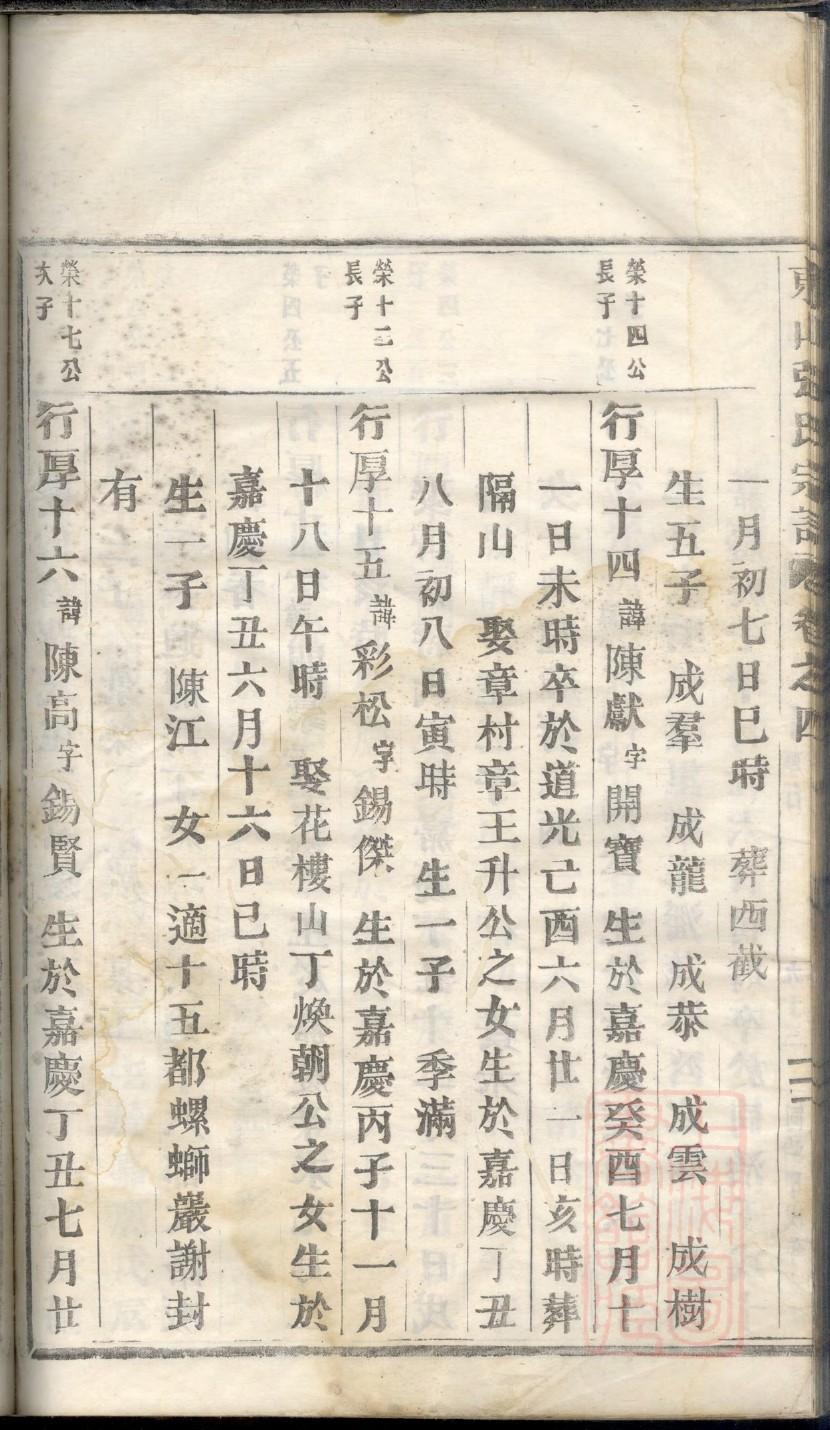 東山張氏宗譜卷之四
一月初七日巳時 葬西截
生五子 成羣 成龍 成恭 成雲 成樹
榮十四公
長子
行厚十四諱陳獻字開寶 生於嘉慶癸酉七月十
一日未時卒於道光己酉六月廿一日亥時葬
隔山 娶章村章王升公之女生於嘉慶丁丑
八月初八日寅時 生一子 季滿
榮十二公
長子
行厚十五諱彩松字錫傑 生於嘉慶丙子十一月
十八日午時 娶花樓山丁煥朝公之女生於
嘉慶丁丑六月十六日巳時
生一子 陳江 女一適十五都螺螄嚴謝封
有
榮十七公
次子
行厚十六諱陳高字錫賢 生於嘉慶丁丑七月廿